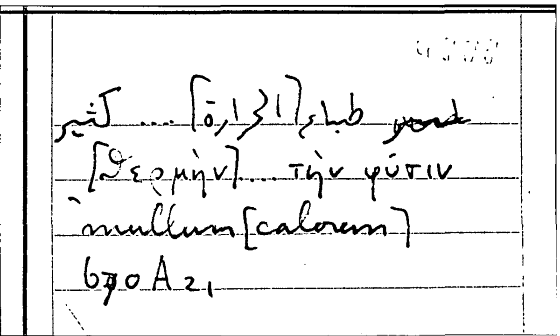 طباع [الحرارة] .... كثير
[θερμὴν].... τὴν φύσιν
multum [calorem]
670 A 21